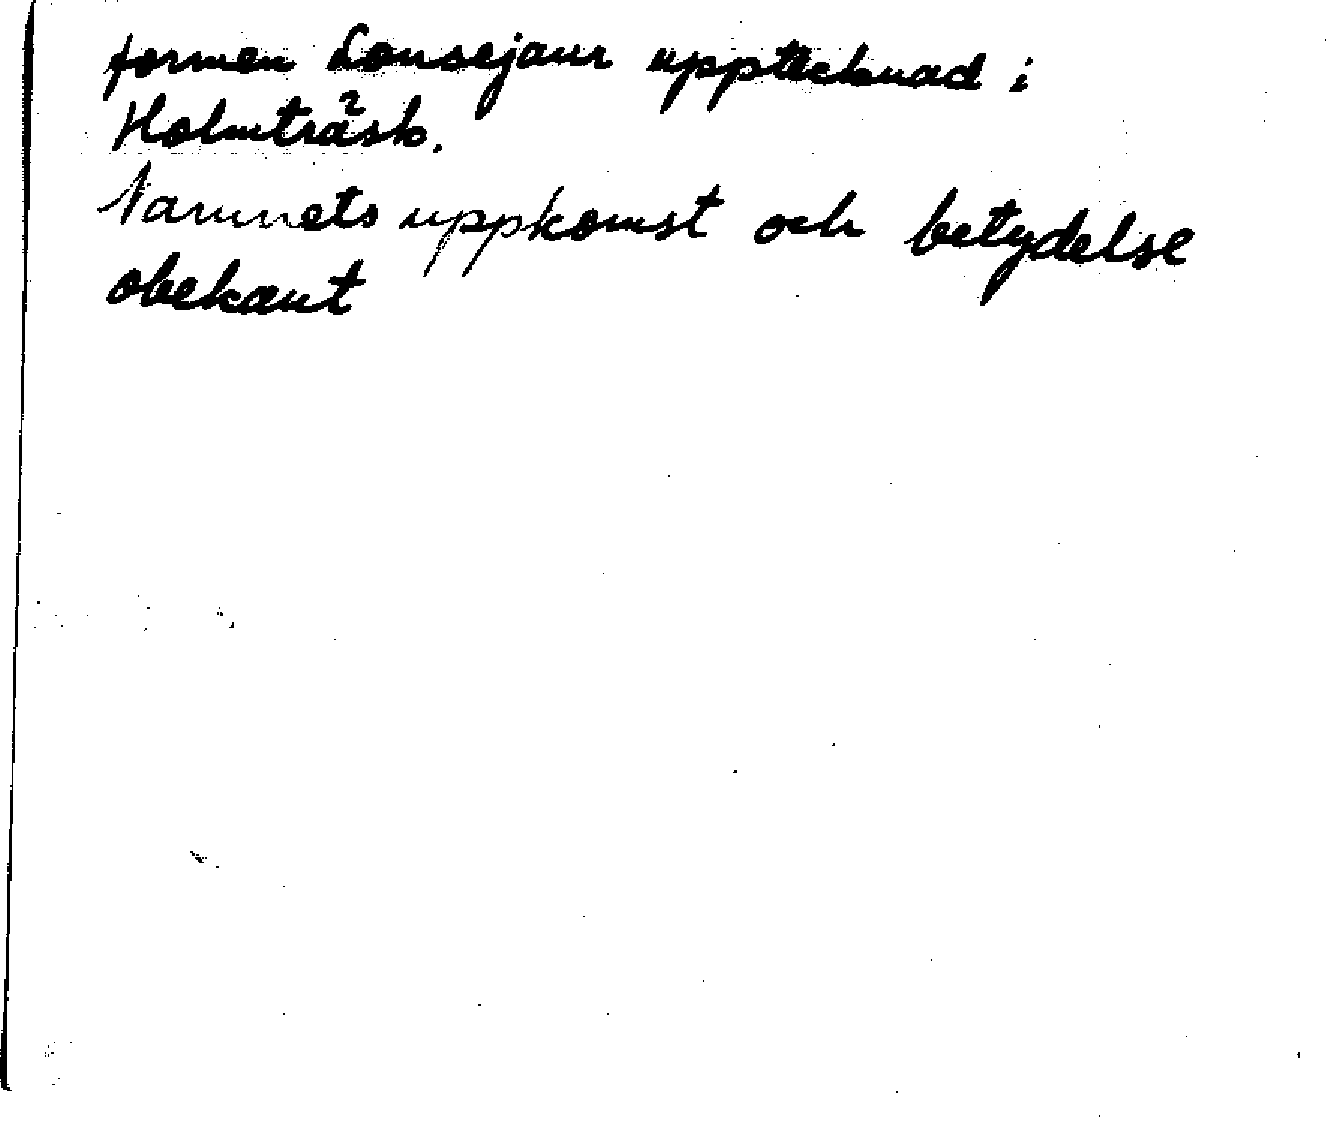 formen Lonsejaur upptecknad i
Holmträsk.
Namnets uppkomst och betydelse
obekant